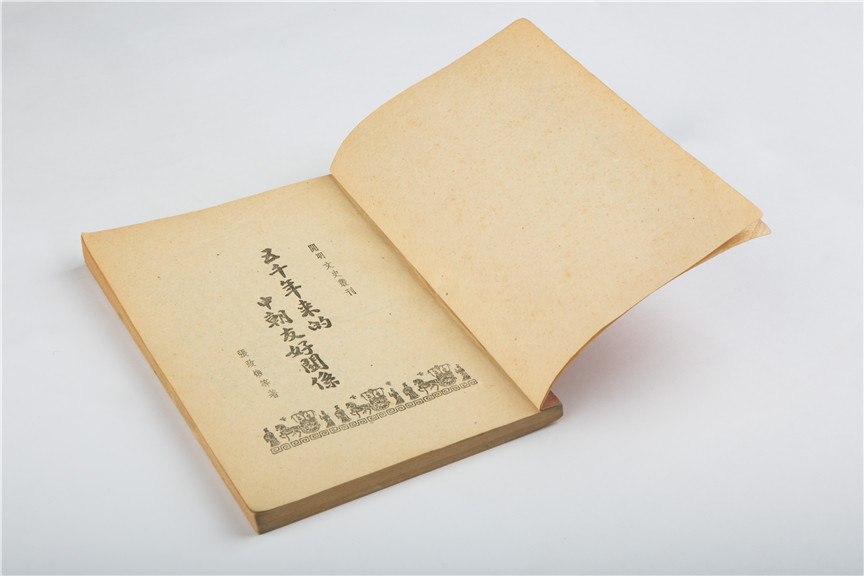 開明文史叢刊
五千年来的
中朝友好關係
張政烺等著